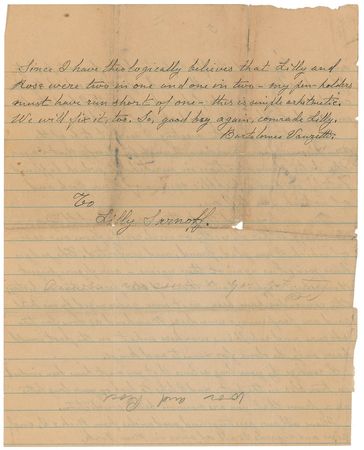 Since I have theologically believes that Lilly and
Rose were two in one and one in two - my pen-holders
must have run short of one - this is simple arhitmetic.
We will fix it, too. So, good bay again, comrade Lilly.
Bartolomeo Vanzetti.
To
Lilly Sarnoff.
and Rose